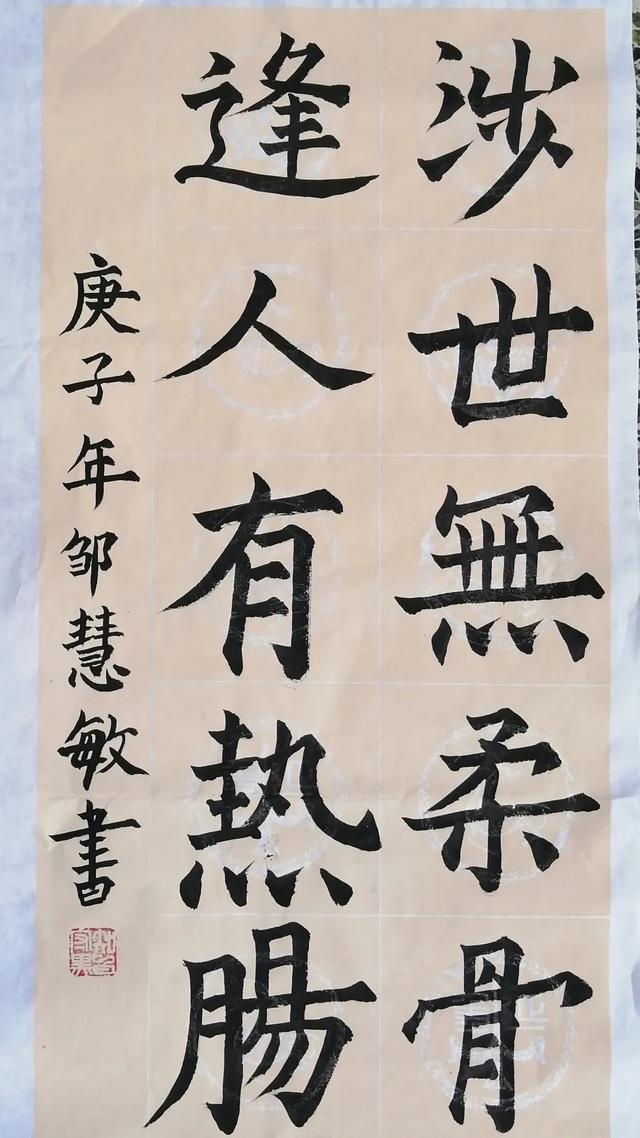 涉世無柔骨
逢人有熱腸
庚子年邹慧敏書